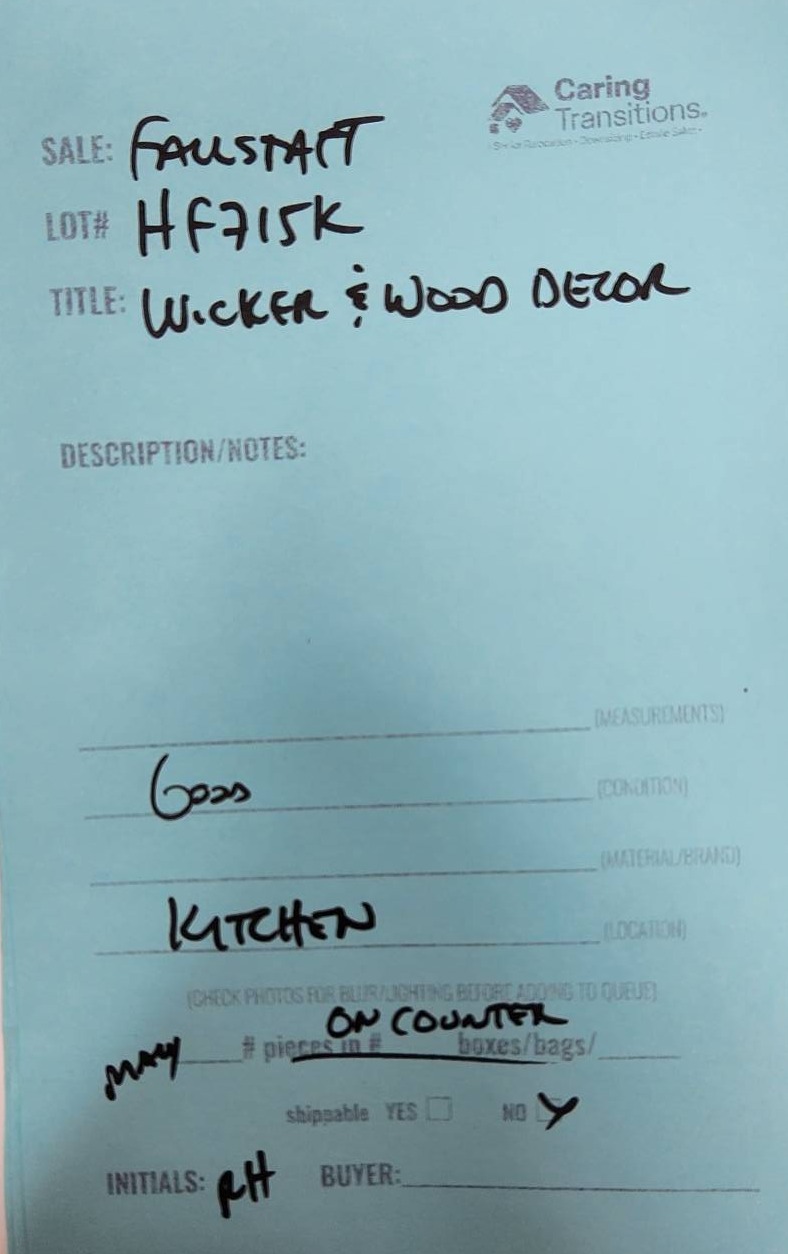 Caring
Transitions.
Senior Relocation • Downsizing • Estate Sales
SALE: FALLSTAFF
LOT# HF715K
TITLE: WICKER & WOOD DECOR
DESCRIPTION/NOTES:
(MEASUREMENTS)
GOOD (CONDITION)
(MATERIAL/BRAND)
KITCHEN (LOCATION)
(CHECK PHOTOS FOR BLUR/LIGHTING BEFORE ADDING TO QUEUE)
ON COUNTER
MANY # pieces in # boxes/bags/
shippable YES NO
INITIALS: RH BUYER: